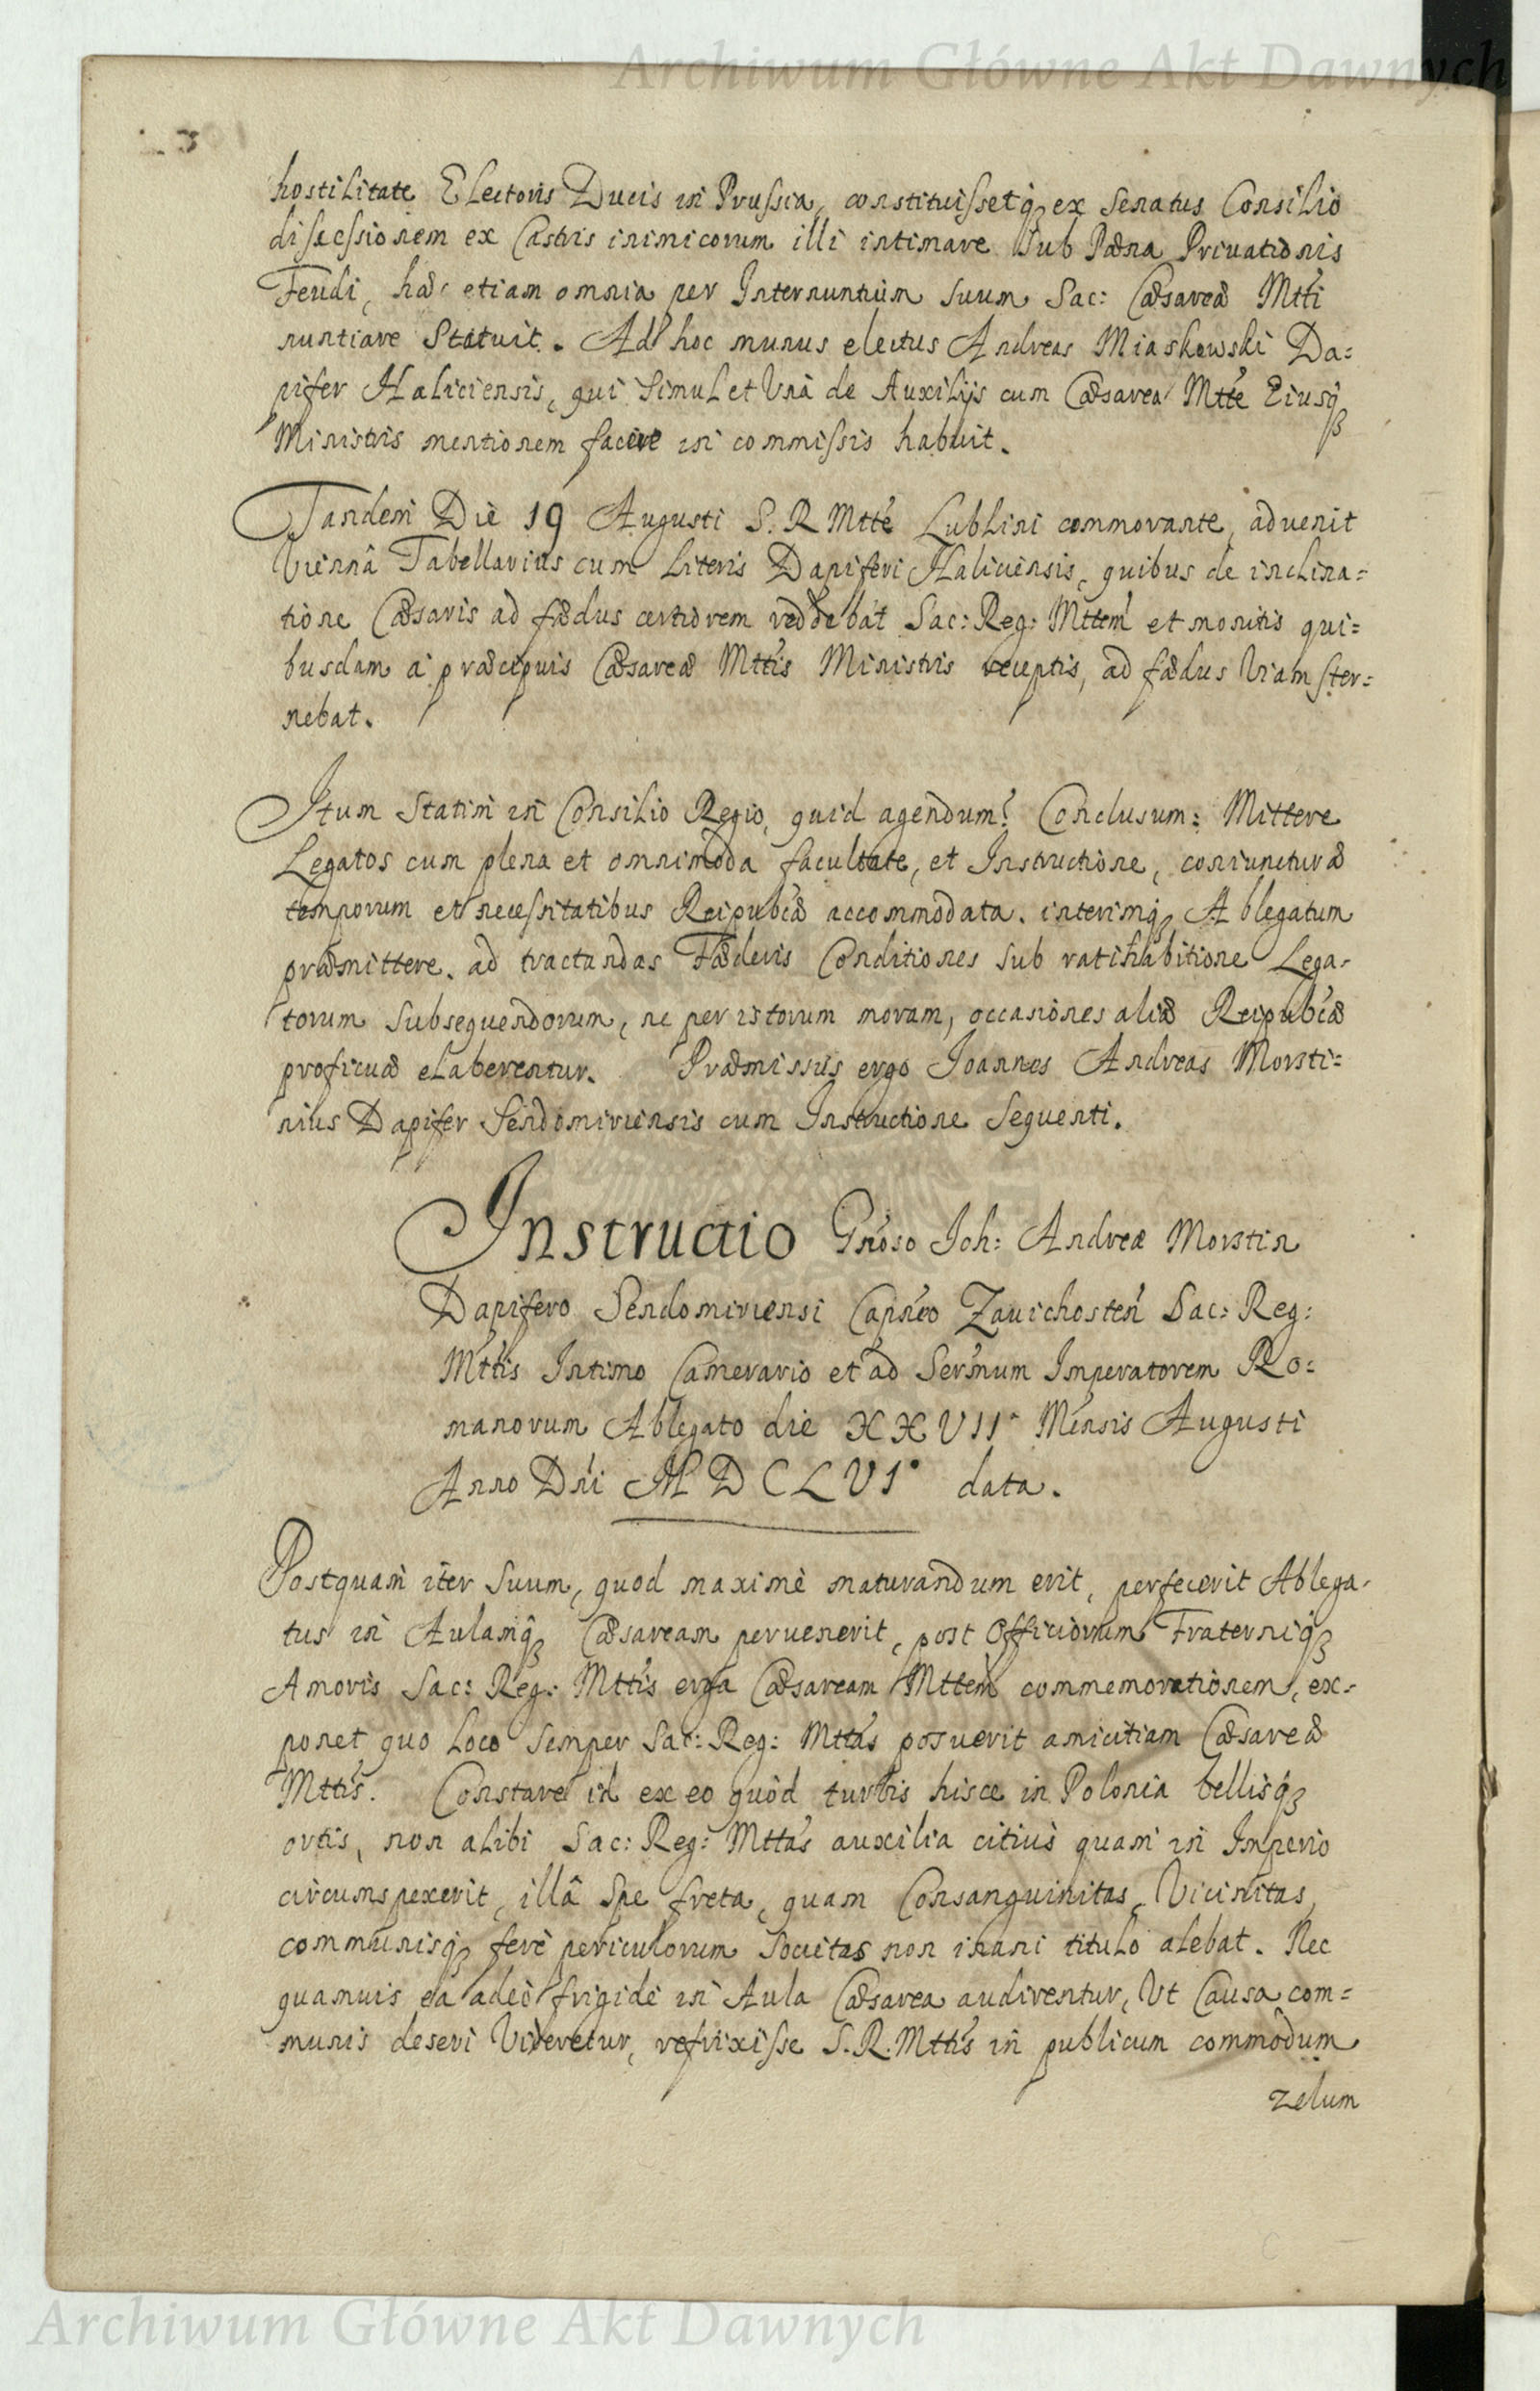 Archiwum Główne Akt Dawnych
hostilitate Electoris Ducis in Prussia, constituissetq3 ex Senatus Consilio
discessionem ex Castris inimicorum illi intimare sub Pæna Privationis
Feudi, hæc etiam omnia per Internuntium suum Sac: Cæsareæ Mtti
nuntiare Statuit. Ad hoc munus electus Andreas Miaskowski Da=
pifer Haliciensis, qui simul et Unà de Auxilijs cum Cæsarea Mtte Eiusq3
Ministris mentionem facere in commissis habuit.
Tandem Die 19 Augusti S. R Mtte Lublini commorante, advenit
Viennâ Tabellarius cum Literis Dapiferi Haliciensis, quibus de inclina=
tione Cæsaris ad fædus certiorem reddebat Sac: Reg: Mttem et monitis qui=
busdam a præcipuis Cæsareæ Mttis Ministris receptis, ad fædus Viam ster=
nebat.
Itum Statim in Consilio Regio, quid agendum? Conclusum: Mittere
Legatos cum plena et omnimoda facultate, et Instructione, coniuncturæ
temporum et necessitatibus Reipubcæ accommodata. interimq3 Ablegatum
præmittere. ad tractandas Fæderis Conditiones sub ratihabitione Lega=
torum Subsequendorum, ne per istorum moram, occasiones aliæ Reipubcæ
proficuæ elaberentur. Præmissus ergo Joannes Andreas Morsti=
nius Dapifer Sendomiriensis cum Instructione Sequenti.
Instructio Gnoso Joh: Andreæ Morstin
Dapifero Sendomiriensi Capneo Zavichosten Sac: Reg:
Mttis Intimo Camerario et ad Sermum Imperatorem Ro=
manorum Ablegato die XXVII Mensis Augusti
Anno Dni MDCLVI° data.
Postquam iter Suum, quod maximè maturandum erit, perfecerit Ablega=
tus in Aulamq3 Cæsaream pervenerit, post Officiorum Fraterniq3
Amoris Sac: Reg: Mttis erga Cæsaream Mttem commemorationem, ex=
ponet quo Loco semper Sac: Reg: Mttas posuerit amicitiam Cæsareæ
Mttis. Constare id ex eo quòd turbis hisce in Polonia bellisq3
ortis, non alibi Sac: Reg: Mttas auxilia citius quam in Imperio
circumspexerit, illâ Spe freta, quam Consanguinitas, Vicinitas,
communisq3 ferè periculorum Societas non inani titulo alebat. Nec
quamuis ea adeò frigidè in Aula Cæsarea audirentur, Ut Causa com=
munis deseri Videretur, refrixisse S. R. Mttis in publicum commodum
zelum
Archiwum Główne Akt Dawnych